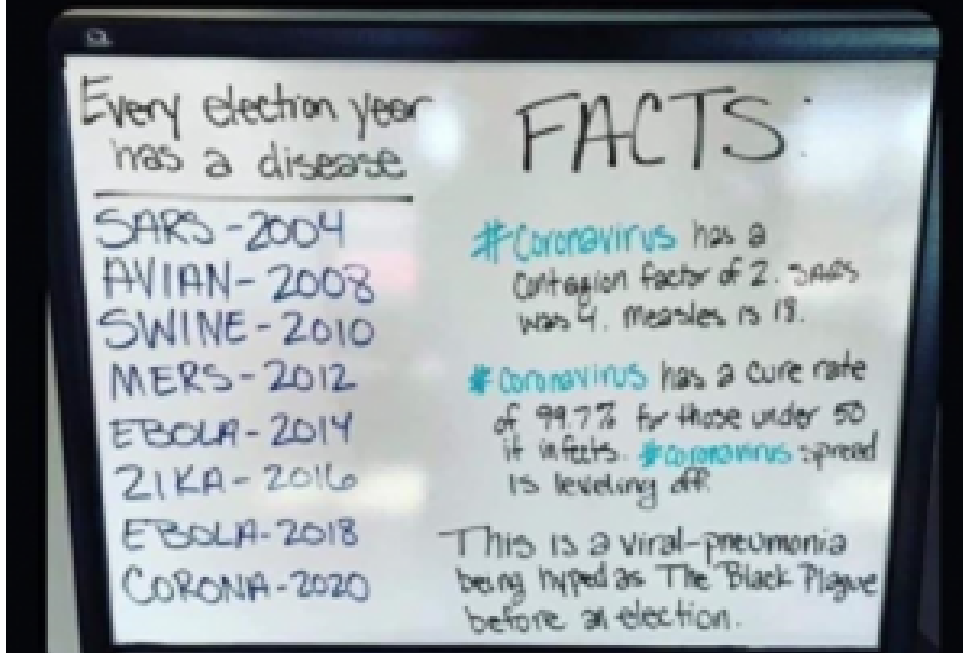 Every election year
has a disease
SARS - 2004
AVIAN - 2008
SWINE - 2010
MERS - 2012
EBOLA - 2014
ZIKA - 2016
EBOLA - 2018
CORONA - 2020
FACTS:
#Coronavirus has a
Contagion factor of 2. SARS
was 4. Measles is 18.
#Coronavirus has a cure rate
of 99.7% for those under 50
it infects. #Coronavirus spread
is leveling off.
This is a viral-pneumonia
being hyped as The Black Plague
before an election.